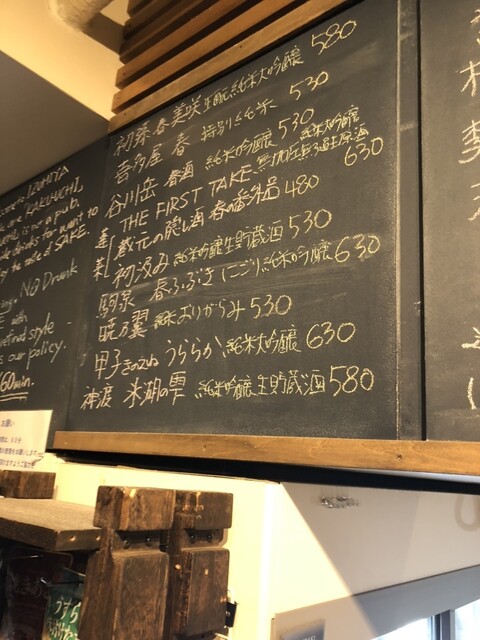 初孫 春美咲 生酛純米大吟醸 580
喜多屋 春 特別純米 530
谷川岳 春酒 純米吟醸 530
蓬莱 THE FIRST TAKE 純米大吟醸 無加圧無ろ過生原酒 630
蔵元の隠し酒 春の番外品 480
初汲み 純米吟醸生貯蔵酒 530
駒泉 春ふぶき にごり純米吟醸 630
暁の翼 純米おりがらみ 530
甲子きのえね うららか 純米大吟醸 630
神渡 氷湖の雫 純米吟醸生貯蔵酒 580
IZUMIYA
KAKUUCHI
is no a pub.
drinks for want to
the role of SAKE.
NO Drunk
with
style
our policy.
60min.
お願い